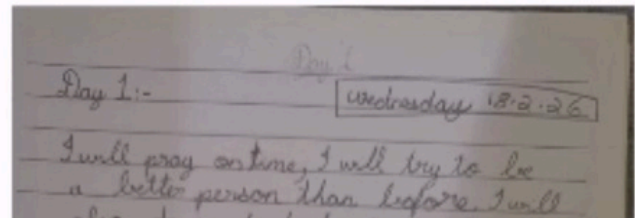 Day 1
Day 1:-
wednesday 18.2.26
I will pray on time, I will try to be
a better person than before. I will